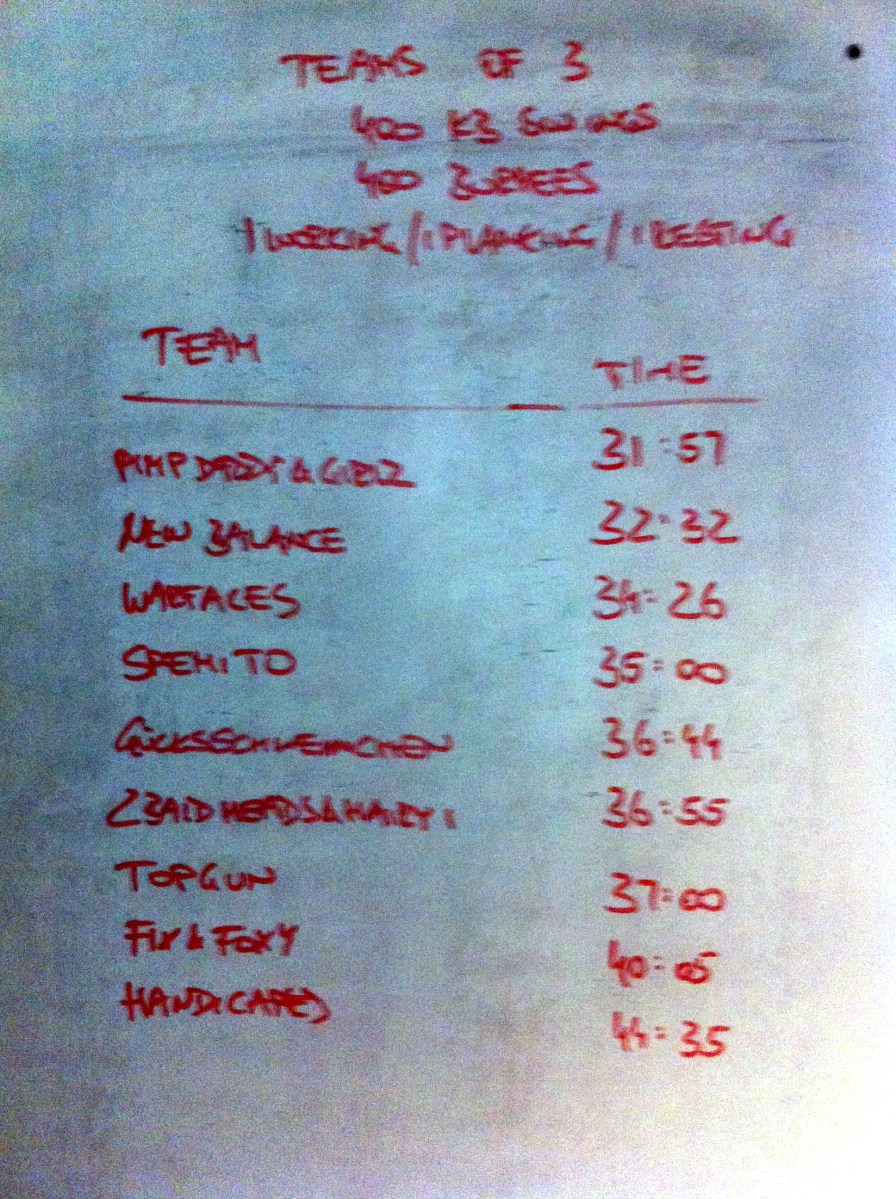 TEAMS OF 3
400 KB SWINGS
400 BURPEES
1 WORKING / 1 PLANKING / 1 RESTING
TEAM TIME
PIMP DADDY & GIRLZ 31:57
NEW BALANCE 32:32
WARFACES 34:26
SPEMITO 35:00
GÜCKSSCHWEINCHEN 36:44
2 BALD HEADS & HAIRY 1 36:55
TOPGUN 37:00
FIX & FOXY 40:05
HANDICAPED 44:35